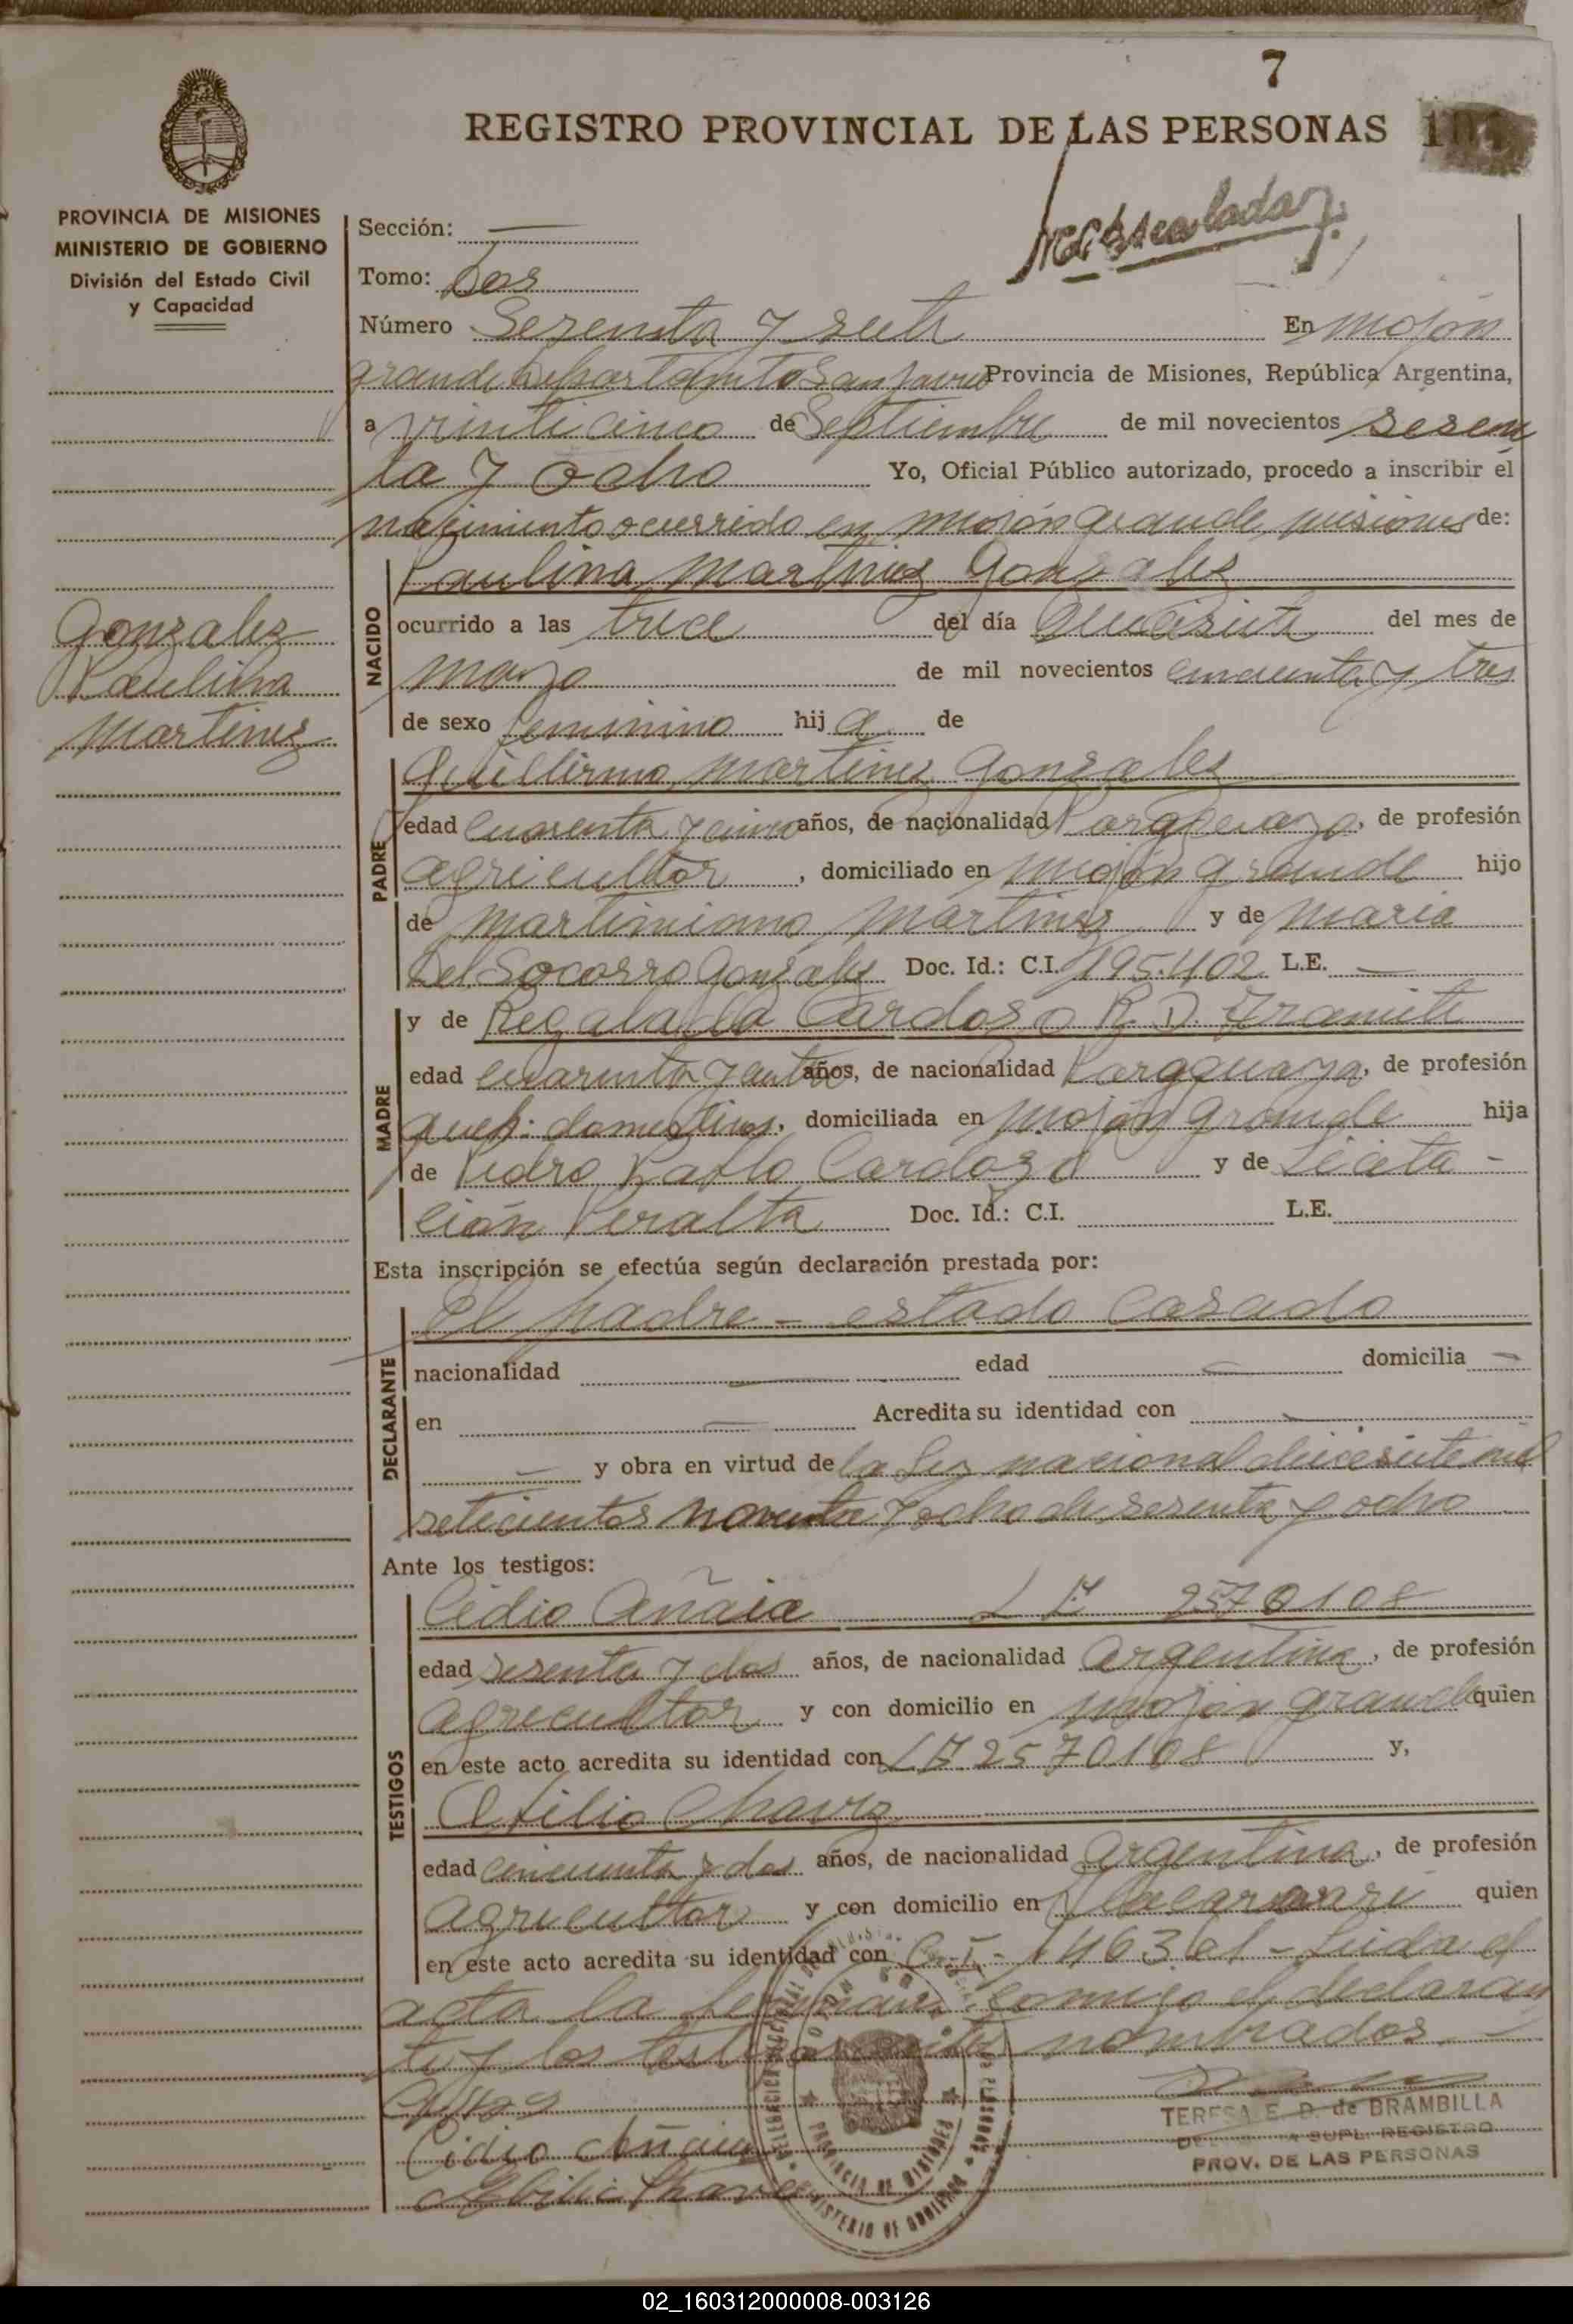 7
REGISTRO PROVINCIAL DE LAS PERSONAS
PROVINCIA DE MISIONES
MINISTERIO DE GOBIERNO
División del Estado Civil
y Capacidad
Sección: —
Tomo: Dos
Número Sesenta y siete En Mojón
grande Departamento San Javier Provincia de Misiones, República Argentina,
a vinticinco de Septiembre de mil novecientos sesen
ta y ocho Yo, Oficial Público autorizado, procedo a inscribir el
nacimiento ocurrido en mojón grande misiones de:
Gonzalez
Paulina
Martinez
NACIDO
Paulina Martinez Gonzalez
ocurrido a las trece del día diecisiete del mes de
marzo de mil novecientos cincuenta y tres
de sexo femenino hija de
PADRE
Guillermo Martinez Gonzalez
edad cuarenta y cinco años, de nacionalidad Paraguayo, de profesión
agricultor, domiciliado en mojón grande hijo
de Martiniano Martinez y de Maria
Del Socorro Gonzalez Doc. Id.: C.I. 195.402 L.E. —
MADRE
y de Regalada Cardoso R. D. Tramite
edad cuarenta y años, de nacionalidad Paraguaya, de profesión
queh: domesticos, domiciliada en mojón grande hija
de Pedro Pablo Cardozo y de Licita -
ción Peralta Doc. Id.: C.I. L.E.
Esta inscripción se efectúa según declaración prestada por:
DECLARANTE
El padre - estado Casado
nacionalidad — edad — domicilia —
en — Acredita su identidad con —
— y obra en virtud de la Ley nacional diecisiete mil
setecientos noventa y ocho de sesenta y ocho
Ante los testigos:
TESTIGOS
Cidio Añaia L E 2570108
edad sesenta y dos años, de nacionalidad Argentina, de profesión
agricultor y con domicilio en mojón grande quien
en este acto acredita su identidad con L E 2570108 y,
Otilio Chavez
edad cincuenta y dos años, de nacionalidad Argentina, de profesión
agricultor y con domicilio en quien
en este acto acredita su identidad con C. I. - Leida el
acta la conmigo el declaran
te y los testigos nombrados
Cidio Añaia
Chavez
PROVINCIA DE MISIONES
MINISTERIO DE GOBIERNO
TERESA E. D. de BRAMBILLA
SUPL. REGISTRO
PROV. DE LAS PERSONAS
02_160312000008-003126